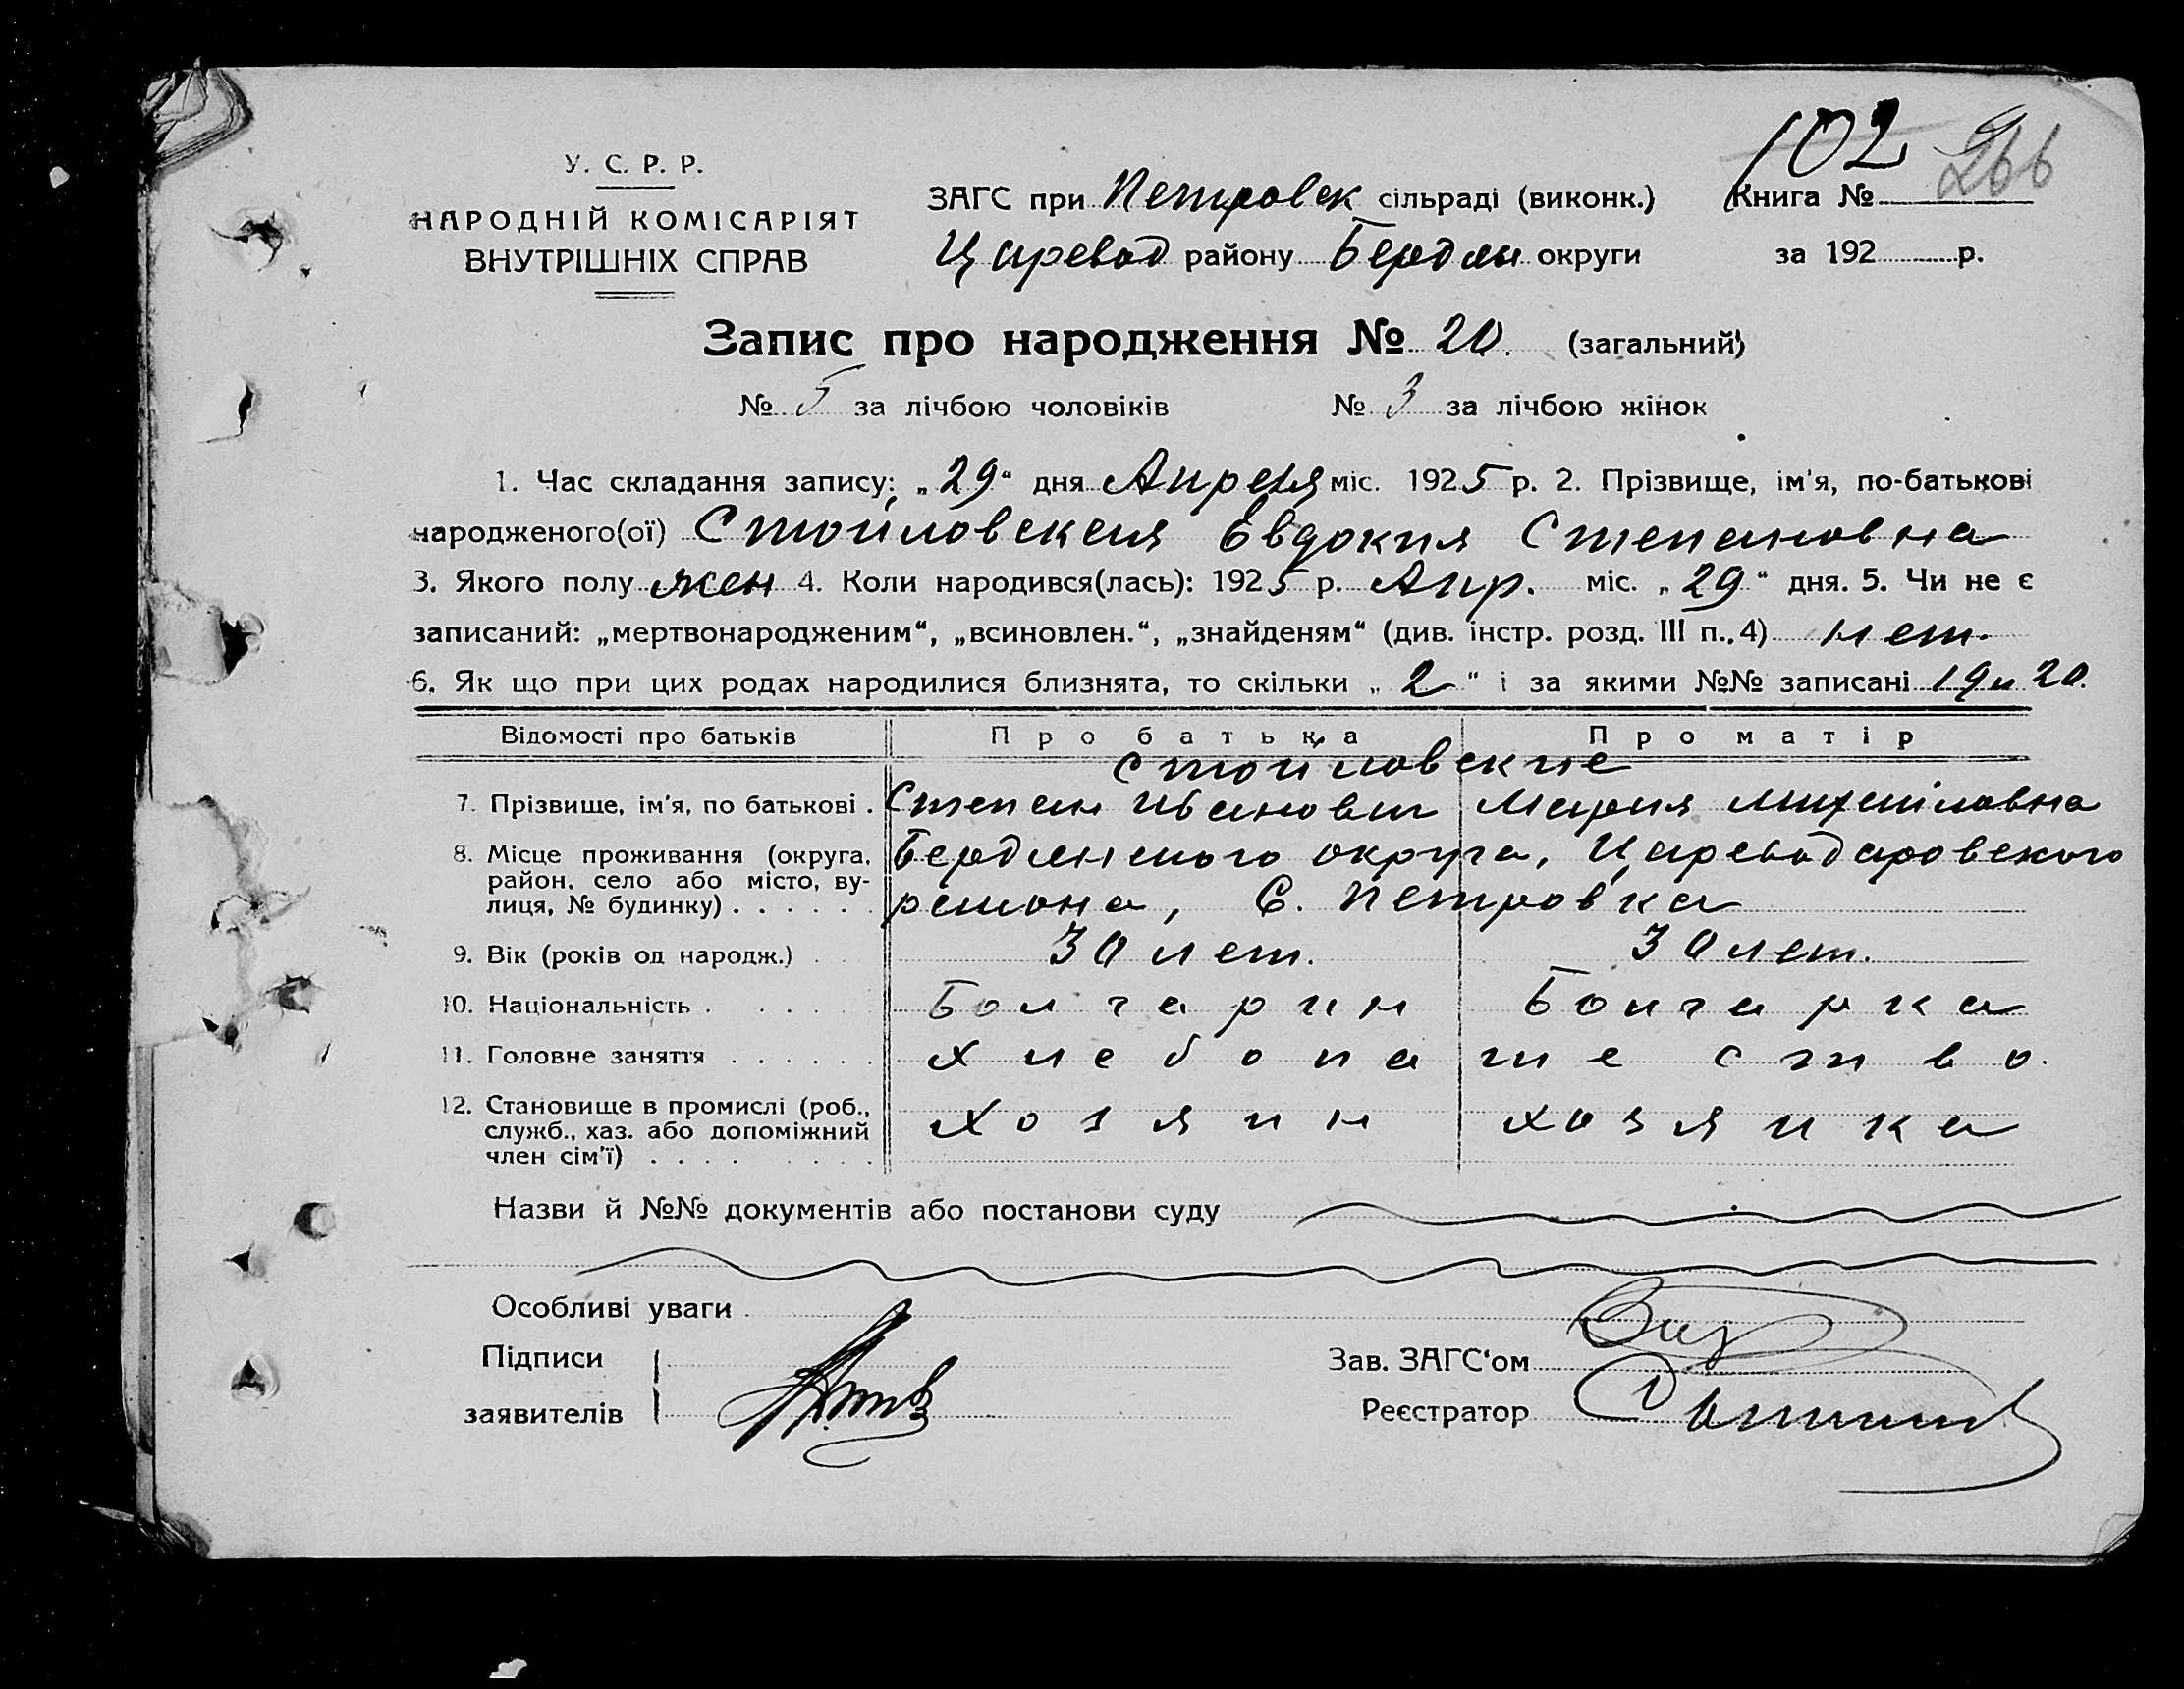 102 266
У. С. Р. Р.
НАРОДНІЙ КОМІСАРІЯТ
ВНУТРІШНІХ СПРАВ
ЗАГС при Петровск сільраді (виконк.) Книга №
Царевод району Бердян округи за 192 р.
Запис про народження № 20. (загальний)
№ 5 за лічбою чоловіків № 3 за лічбою жінок
1. Час складання запису: „29“ дня Апреля міс. 1925 р. 2. Прізвище, ім'я, по-батькові
народженого(ої) Стойловская Евдокия Степановна
3. Якого полу жен 4. Коли народився(лась): 1925 р. Апр. міс. „29“ дня. 5. Чи не є
записаний: „мертвонародженим“, „всиновлен.“, „знайденям“ (див. інстр. розд. III п. 4) нет.
6. Як що при цих родах народилися близнята, то скільки „2“ і за якими №№ записані 19 и 20.
Відомості про батьків Про батька Про матір
Стойловские
7. Прізвище, ім'я, по батькові . Степан Иванович Мария Михайловна
8. Місце проживання (округа, район, село або місто, вулиця, № будинку) . . . . . . Бердянского округа, Цареводаровского
района, С. Петровка
9. Вік (років од народж.) . . 30 лет. 30 лет.
10. Національність . . . . . . Болгарин Болгарка
11. Головне заняття . . . . . . Хлебопашество.
12. Становище в промислі (роб., служб., хаз. або допоміжний член сім'ї) . . . . . . . . Хозяин хозяйка
Назви й №№ документів або постанови суду
Особливі уваги
Підписи
заявителів
Зав. ЗАГС'ом
Реєстратор